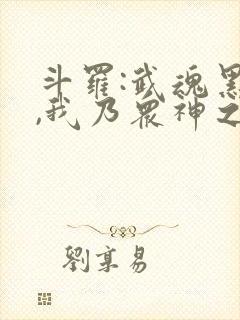 斗羅:武魂黑
,我乃眾神之
劉享易